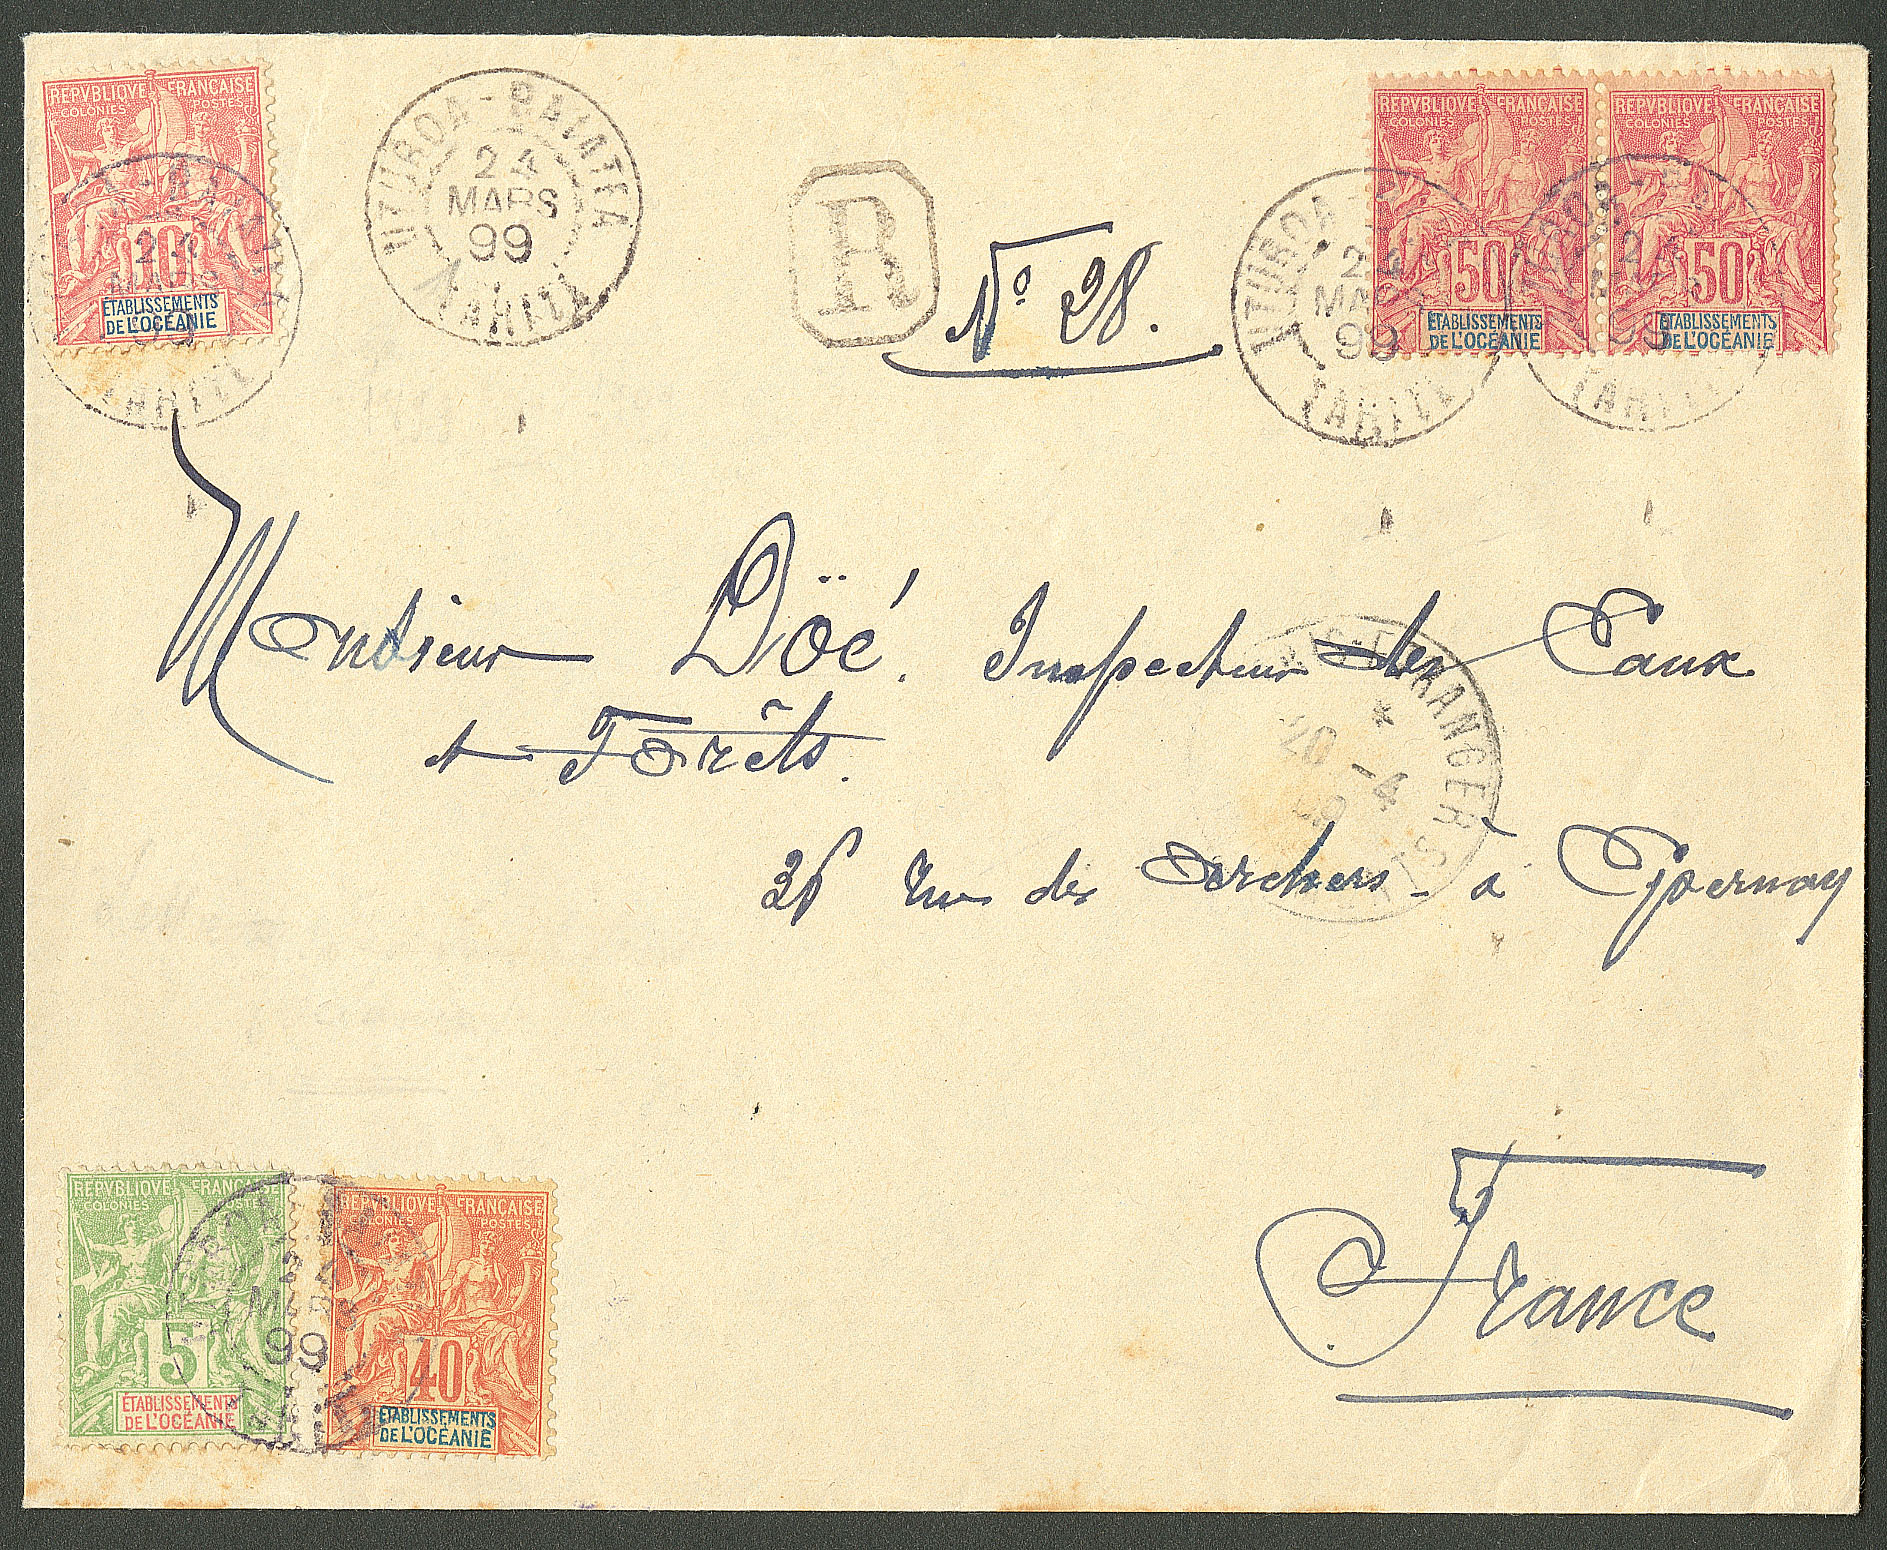 REPVBLIQVE FRANÇAISE
COLONIES POSTES
10
ÉTABLISSEMENTS
DE L'OCÉANIE
24
MARS
99
TAHITI
UTUROA-RAIATEA
24
MARS
99
TAHITI
R
N° 28.
REPVBLIQVE FRANÇAISE
COLONIES POSTES
50
ÉTABLISSEMENTS
DE L'OCÉANIE
REPVBLIQVE FRANÇAISE
COLONIES POSTES
50
ÉTABLISSEMENTS
DE L'OCÉANIE
UTUROA
24
MARS
99
TAHITI
24
99
TAHITI
Monsieur Döé. Inspecteur des Eaux
et Forêts.
36 rue des Archers à Epernay
France
ETRANGER
20 -4
REPVBLIQVE FRANÇAISE
COLONIES
5
ÉTABLISSEMENTS
DE L'OCÉANIE
REPVBLIQVE FRANÇAISE
COLONIES POSTES
40
ÉTABLISSEMENTS
DE L'OCÉANIE
24
MARS
99